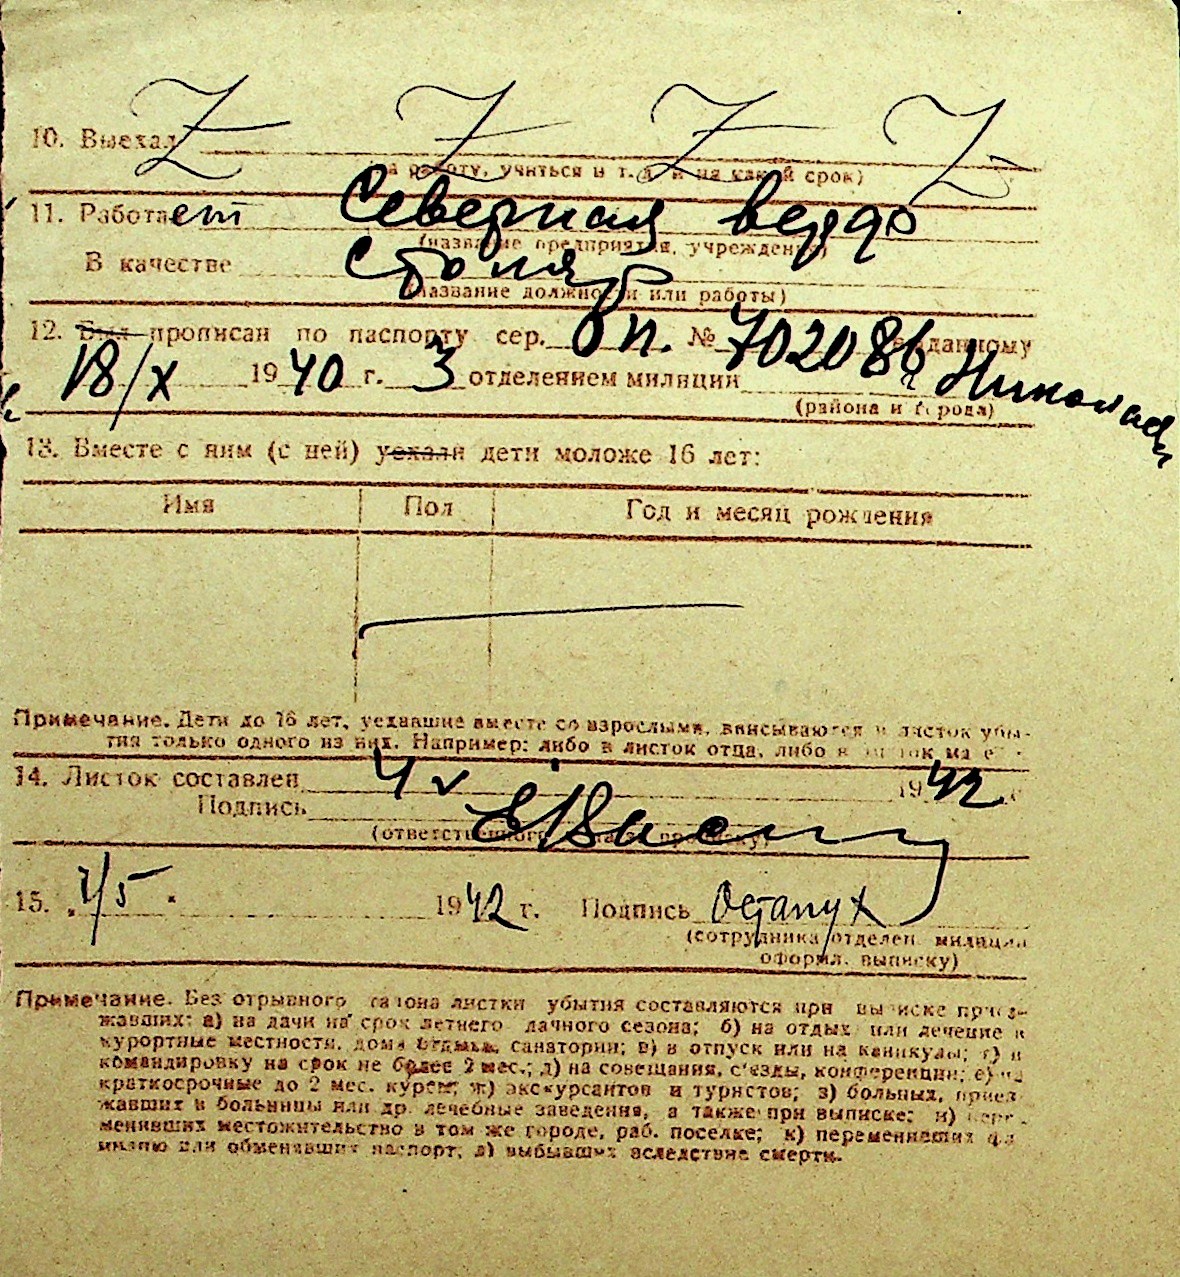 10. Выехал Z Z Z Z
(на работу, учиться и т.д. и на какой срок)
11. Работает Северная верфь
(название предприятия, учреждения)
В качестве столяр
(название должности или работы)
12. Был прописан по паспорту сер. № 702086 выданному
18/X 1940 г. 3 отделением милиции
(района и города)
13. Вместе с ним (с ней) уехали дети моложе 16 лет:
Имя Пол Год и месяц рождения
Примечание. Дети до 16 лет, уехавшие вместе со взрослыми, вписываются в листок убы-
тия только одного из них. Например: либо в листок отца, либо в листок
14. Листок составлен 4 V 1942 г.
Подпись
(ответственного за прописку)
15. 7/5 1942 г. Подпись Остапчук
(сотрудника отделен. милиции
оформл. выписку)
Примечание. Без отрывного талона листки убытия составляются при выписке приез-
жавших: а) на дачи на срок летнего дачного сезона; б) на отдых или лечение в
курортные местности, дома отдыха, санатории; в) в отпуск или на каникулы; г) в
командировку на срок не более 2 мес.; д) на совещания, съезды, конференции; е) на
краткосрочные до 2 мес. курсы; ж) экскурсантов и туристов; з) больных, приез-
жавших в больницы или др. лечебные заведения, а также при выписке; и) пере-
менивших местожительство в том же городе, раб. поселке; к) переменивших фа-
милию или обменявших паспорт; л) выбывших вследствие смерти.